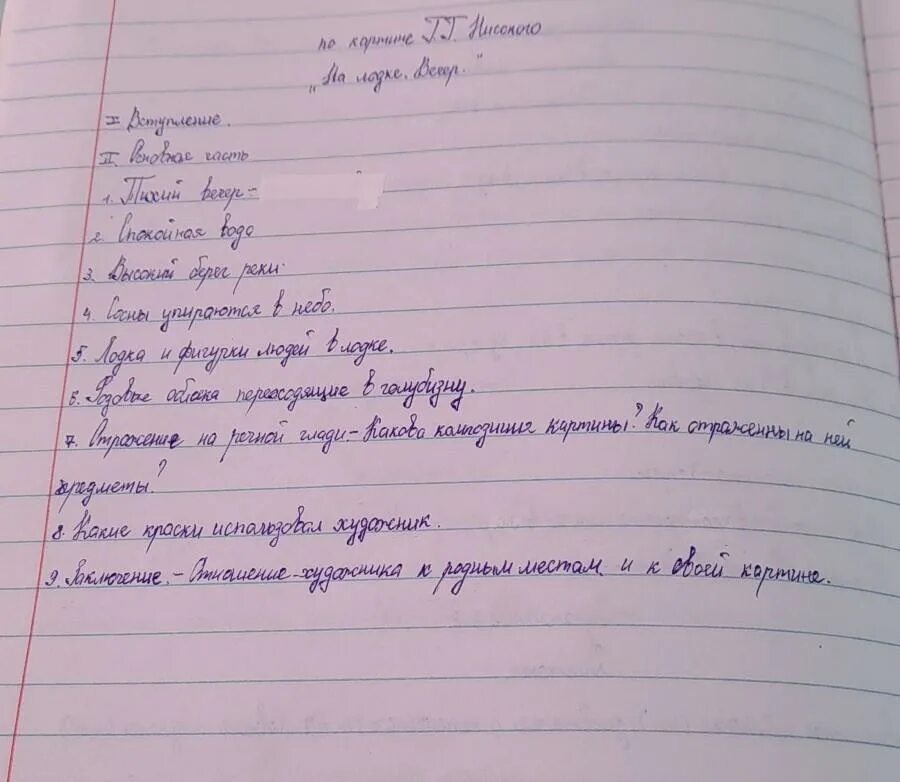 по картине Г.Г. Нисского
„На лодке. Вечер."
I Вступление.
II. Основная часть
1. Тихий вечер -
2. Спокойная вода
3. Высокий берег реки.
4. Сосны упираются в небо.
5. Лодка и фигурки людей в лодке.
6. Розовые облака переходящие в голубизну.
7. Отражение на речной глади - Какова композиция картины? Как отраженны на ней
предметы?
8. Какие краски использовал художник.
9. Заключение. - Отношение художника к родным местам и к своей картине.